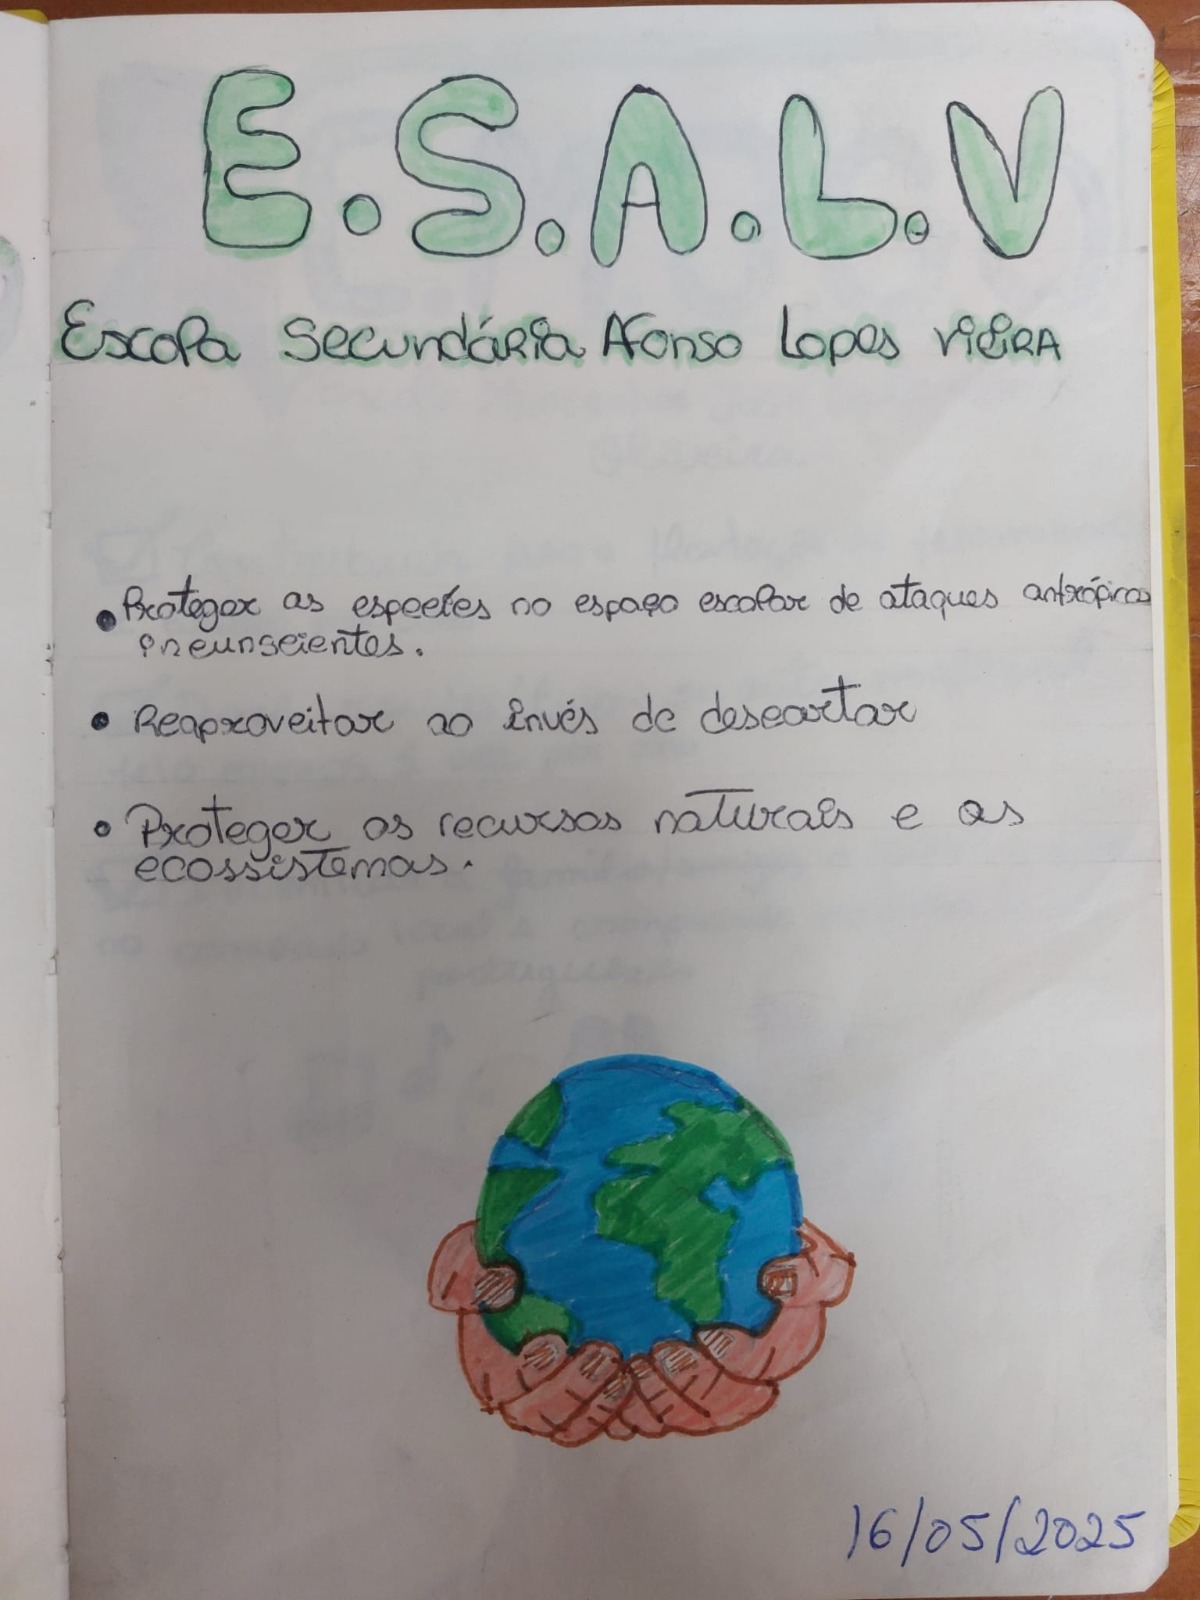 E.S.A.L.V
Escola Secundária Afonso Lopes Vieira
• Proteger as espécies no espaço escolar de ataques antrópicos
inconscientes.
• Reaproveitar ao invés de descartar
• Proteger os recursos naturais e os
ecossistemas.
16/05/2025